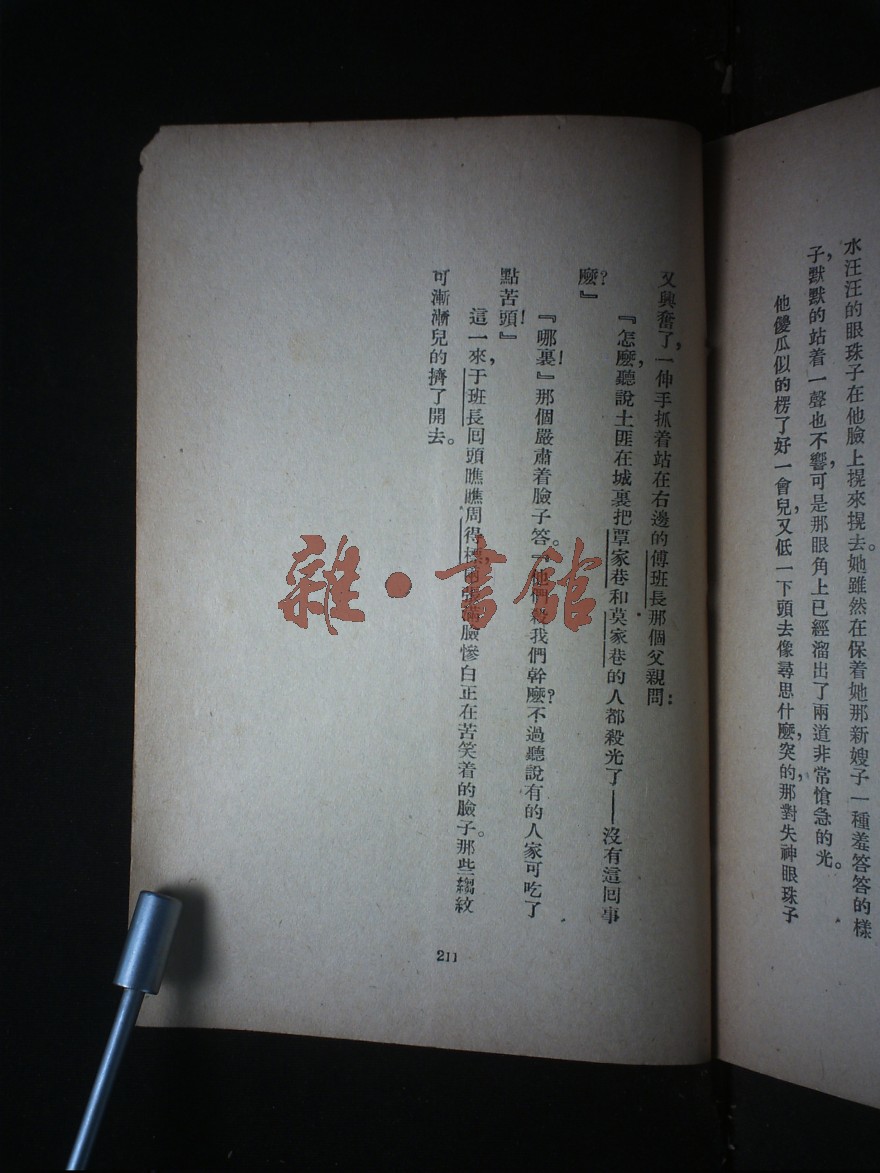 水汪汪的眼珠子在他臉上提來提去。她雖然在保着她那新嫂子一種羞答答的樣
子,默默的站着一聲也不響,可是那眼角上已經溜出了兩道非常愴急的光。
他傻瓜似的楞了好一會兒,又低一下頭去像尋思什麼,突的,那對失神眼珠子
又興奮了,一伸手抓着站在右邊的傅班長那個父親問:
『怎麼,聽說土匪在城裏把覃家巷和莫家巷的人都殺光了——沒有這回事
麼?』
『哪裏!』那個嚴肅着臉子答。『他們殺我們幹麼?不過聽說有的人家可吃了
點苦頭!』
這一來,于班長回頭瞧瞧周得標,滿臉慘白正在苦笑着的臉子。那些縐紋
可漸漸兒的擠了開去。
211
雜·書館